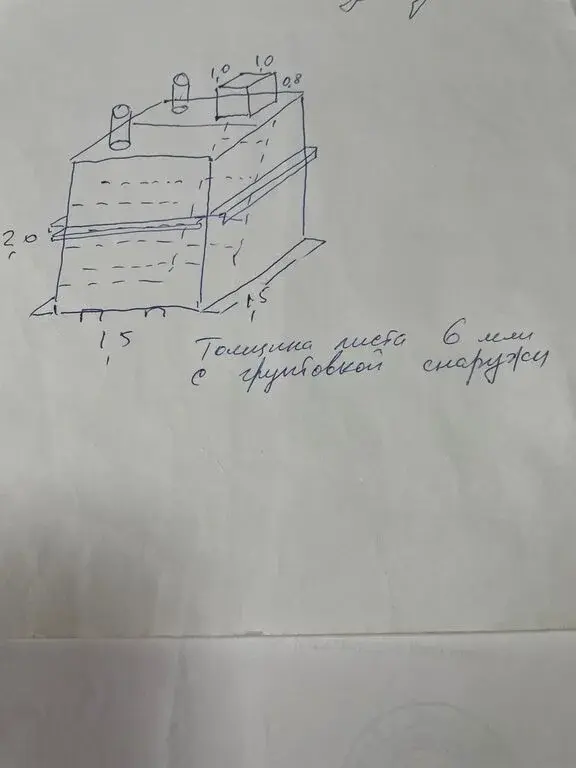 1,0 1,0
0,8
2,0
1,5
1,5
Толщина листа 6 мм
с грунтовкой снаружи